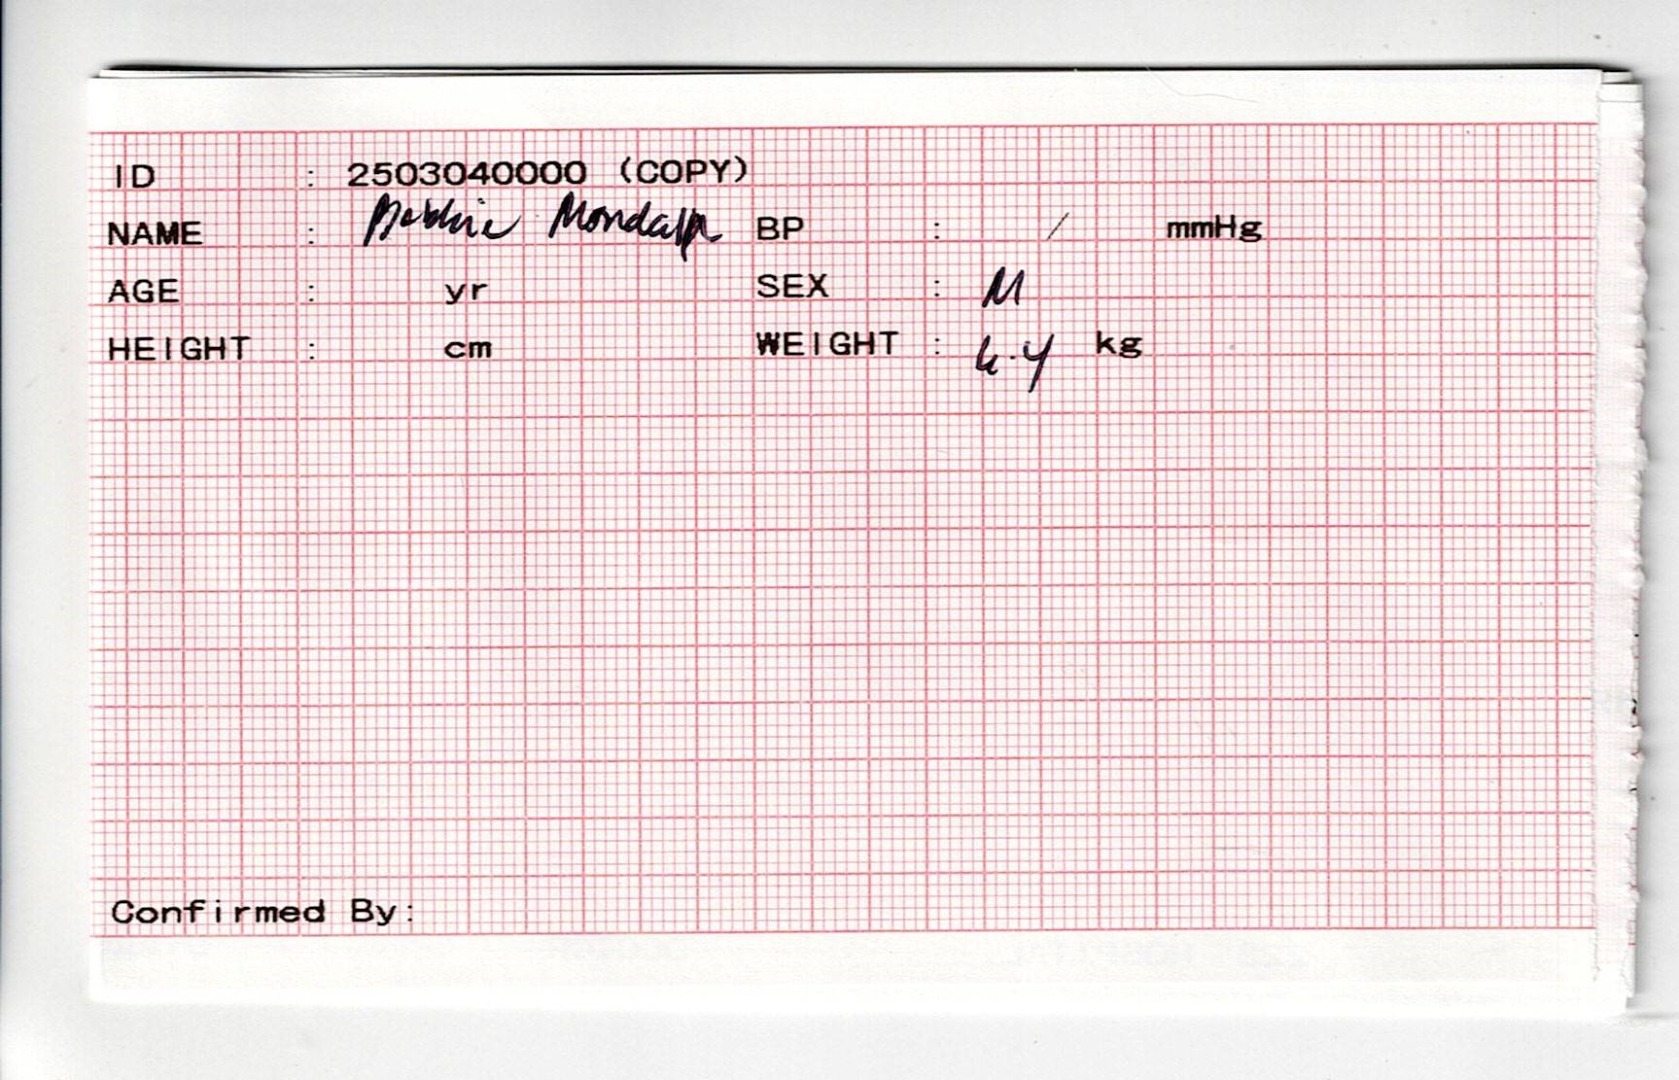 ID : 2503040000 (COPY)
NAME : Mondal BP : / mmHg
AGE : yr SEX : M
HEIGHT : cm WEIGHT : kg
Confirmed By: